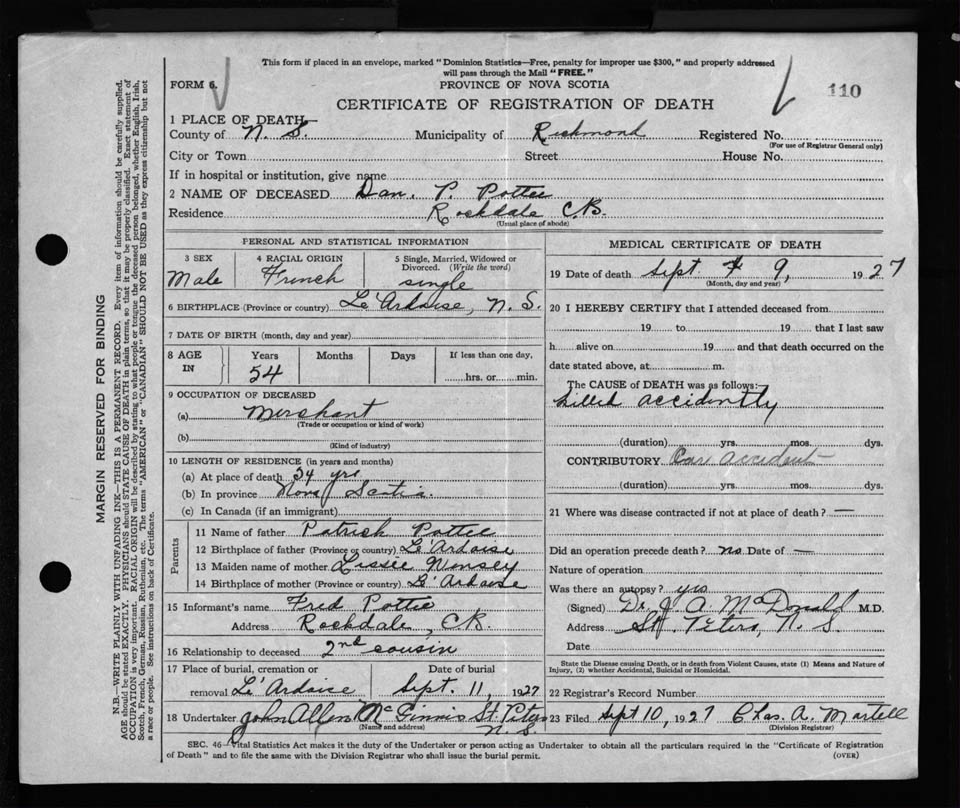 This form if placed in an envelope, marked "Dominion Statistics—Free, penalty for improper use $300," and properly addressed
will pass through the Mail "FREE."
FORM 6.
PROVINCE OF NOVA SCOTIA
110
CERTIFICATE OF REGISTRATION OF DEATH
1 PLACE OF DEATH—
County of N. S. Municipality of Richmond Registered No.
(For use of Registrar General only)
City or Town Street House No.
If in hospital or institution, give name
2 NAME OF DECEASED Dan. P. Pottie
Residence Rockdale C.B.
(Usual place of abode)
PERSONAL AND STATISTICAL INFORMATION
3 SEX 4 RACIAL ORIGIN 5 Single, Married, Widowed or
Divorced. (Write the word)
Male French single
6 BIRTHPLACE (Province or country) Le'Ardoise, N. S.
7 DATE OF BIRTH (month, day and year)
8 AGE Years Months Days If less than one day,
IN 54 hrs. or min.
9 OCCUPATION OF DECEASED
(a) Merchant
(Trade or occupation or kind of work)
(b)
(Kind of industry)
10 LENGTH OF RESIDENCE (in years and months)
(a) At place of death 34 yrs
(b) In province Nova Scotia.
(c) In Canada (if an immigrant)
Parents
11 Name of father Patrick Pottie
12 Birthplace of father (Province or country) Le'Ardoise
13 Maiden name of mother Lissie
14 Birthplace of mother (Province or country) Le'Ardoise
15 Informant's name Fred Pottie
Address Rockdale, C.B.
16 Relationship to deceased 2nd cousin
17 Place of burial, cremation or Date of burial
removal Le'Ardoise Sept. 11, 1927
18 Undertaker John Allen McGinnis St. Peters
(Name and address) N. S.
MEDICAL CERTIFICATE OF DEATH
19 Date of death Sept. 9, 1927
(Month, day and year)
20 I HEREBY CERTIFY that I attended deceased from
19 to 19 that I last saw
h alive on 19 and that death occurred on the
date stated above, at m.
The CAUSE of DEATH was as follows:
Killed accidently
(duration) yrs. mos. dys.
CONTRIBUTORY Car accident
(duration) yrs. mos. dys.
21 Where was disease contracted if not at place of death? —
Did an operation precede death? no Date of —
Nature of operation
Was there an autopsy? yes
(Signed) Dr. J. A. McDonald M.D.
Address St. Peters, N. S.
Date
State the Disease causing Death, or in death from Violent Causes, state (1) Means and Nature of
Injury, (2) whether Accidental, Suicidal or Homicidal.
22 Registrar's Record Number
23 Filed Sept 10, 1927 Chas. A. Martell
(Division Registrar)
SEC. 46—Vital Statistics Act makes it the duty of the Undertaker or person acting as Undertaker to obtain all the particulars required in the "Certificate of Registration
of Death" and to file the same with the Division Registrar who shall issue the burial permit. (OVER)
MARGIN RESERVED FOR BINDING
N.B.—WRITE PLAINLY WITH UNFADING INK—THIS IS A PERMANENT RECORD. Every item of information should be carefully supplied.
AGE should be stated EXACTLY. PHYSICIANS should STATE CAUSE OF DEATH in plain terms, so that it may be properly classified. Exact statement of
OCCUPATION is very important. RACIAL ORIGIN will be described by stating to what people or tongue the deceased person belonged, whether English, Irish,
Scotch, French, German, Russian, Ruthenian, etc. The terms "AMERICAN" or "CANADIAN" SHOULD NOT BE USED as they express citizenship but not
a race or people. See instructions on back of Certificate.